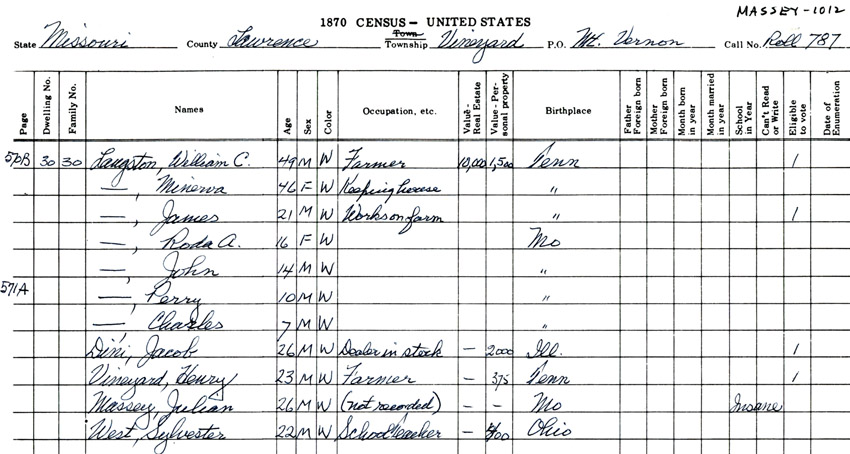 MASSEY-1012
1870 CENSUS — UNITED STATES
State Missouri County Lawrence Town Township Vineyard P.O. Mt. Vernon Call No. Roll 787
Page Dwelling No. Family No. Names Age Sex Color Occupation, etc. Value - Real Estate Value - Personal property Birthplace Father Foreign born Mother Foreign born Month born in year Month married in year School in Year Can't Read or Write Eligible to vote Date of Enumeration
570B 30 30 Langston, William C. 49 M W Farmer 10,000 1,500 Tenn 1
—, Minerva 46 F W Keeping house "
—, James 21 M W Works on farm " 1
—, Roda A. 16 F W Mo
—, John 14 M W "
571A —, Perry 10 M W "
—, Charles 7 M W "
Jacob 26 M W Dealer in stock — 2000 Ill. 1
Vineyard, Henry 23 M W Farmer — 375 Tenn 1
Massey, Julian 26 M W (not recorded) — — Mo Insane
West, Sylvester 22 M W School teacher — Ohio